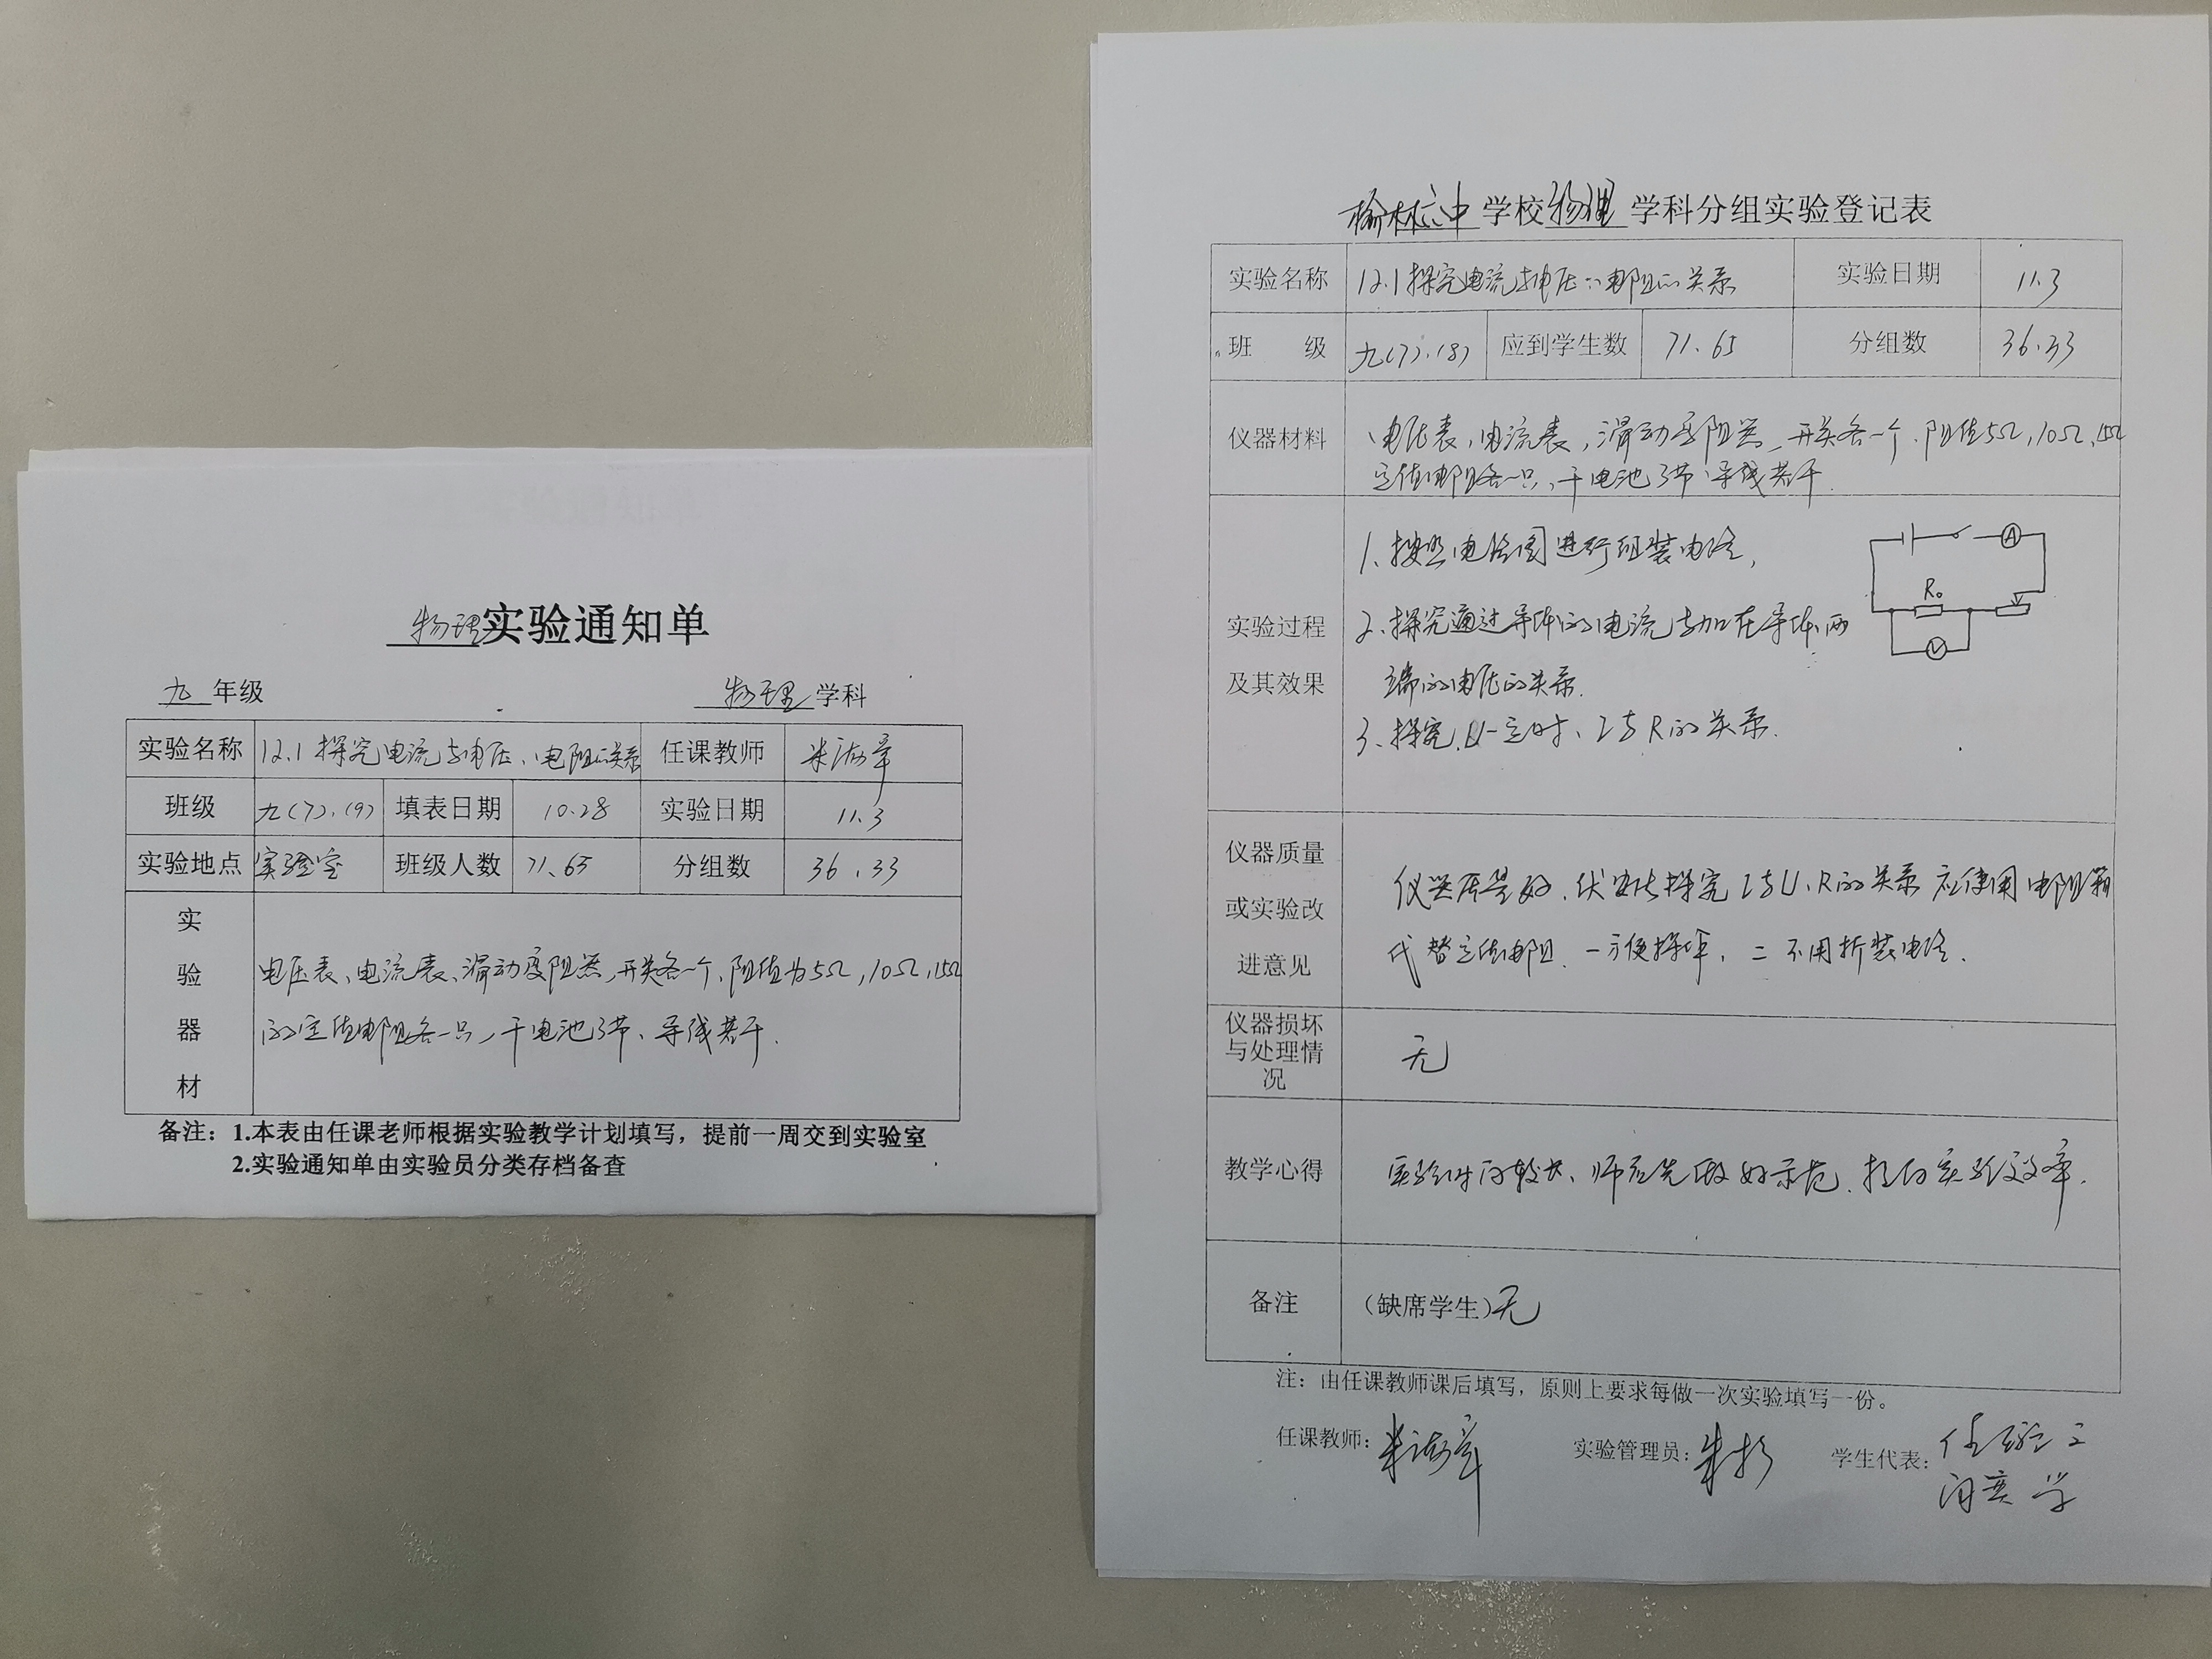 物理实验通知单
九年级 物理学科
实验名称 12.1探究电流与电压、电阻的关系 任课教师
班级 九(7)、(9) 填表日期 10.28 实验日期 11.3
实验地点 实验室 班级人数 71、65 分组数 36、33
实验器材
电压表、电流表、滑动变阻器、开关各一个、阻值为5Ω,10Ω,15Ω
的定值电阻各一只、干电池3节、导线若干.
备注：1.本表由任课老师根据实验教学计划填写，提前一周交到实验室
2.实验通知单由实验员分类存档备查
榆林六中学校物理学科分组实验登记表
实验名称 12.1探究电流与电压、电阻的关系 实验日期 11.3
班 级 九(7)、(8) 应到学生数 71、65 分组数 36、33
仪器材料
电压表,电流表,滑动变阻器、开关各一个、阻值5Ω,10Ω,15Ω
定值电阻各一只、干电池3节、导线若干.
实验过程及其效果
1、按照电路图进行组装电路,
2、探究通过导体的电流与加在导体两
端的电压的关系.
3、探究U一定时、I与R的关系.
A
R₀
V
仪器质量或实验改进意见
仪器质量好.伏安法探究I与U、R的关系应使用电阻箱
代替定值电阻.一方便操作,二不用拆装电路.
仪器损坏与处理情况 无
教学心得
实验时间较长、师应先做好示范.提高实验效率.
备注 (缺席学生)无
注：由任课教师课后填写，原则上要求每做一次实验填写一份。
任课教师： 实验管理员： 学生代表：